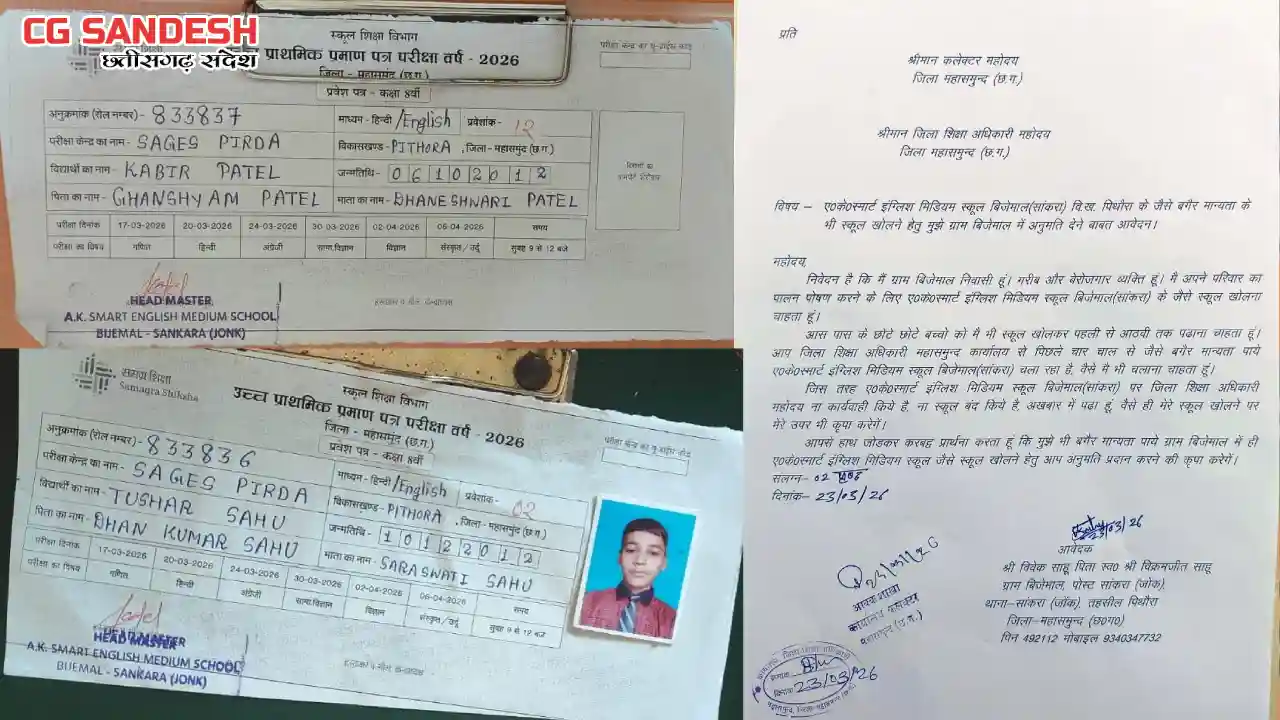 CG SANDESH
छत्तीसगढ़ संदेश
स्कूल शिक्षा विभाग
प्राथमिक प्रमाण पत्र परीक्षा वर्ष - 2026
जिला - महासमुंद (छ.ग.)
प्रवेश पत्र - कक्षा 8वीं
अनुक्रमांक (रोल नम्बर) - 833837
माध्यम - हिन्दी /English
प्रवेशांक - 12
परीक्षा केन्द्र का नाम - SAGES PIRDA
विकासखण्ड - PITHORA , जिला - महासमुंद (छ.ग.)
विद्यार्थी का नाम - KABIR PATEL
जन्मतिथि - 06102012
पिता का नाम - GHANSHYAM PATEL
माता का नाम - DHANESHWARI PATEL
परीक्षा दिनांक 17-03-2026 20-03-2026 24-03-2026 30-03-2026 02-04-2026 06-04-2026 समय
परीक्षा का विषय गणित हिन्दी अंग्रेजी सामा.विज्ञान विज्ञान संस्कृत / उर्दु सुबह 9 से 12 बजे
HEAD MASTER
A.K. SMART ENGLISH MEDIUM SCHOOL
BIJEMAL - SANKARA (JONK)
समग्र शिक्षा
Samagra Shiksha
स्कूल शिक्षा विभाग
उच्च प्राथमिक प्रमाण पत्र परीक्षा वर्ष - 2026
जिला - महासमुंद (छ.ग.)
प्रवेश पत्र - कक्षा 8वीं
अनुक्रमांक (रोल नम्बर) - 833836
माध्यम - हिन्दी /English
प्रवेशांक - 02
परीक्षा केन्द्र का नाम - SAGES PIRDA
विकासखण्ड - PITHORA , जिला - महासमुंद (छ.ग.)
विद्यार्थी का नाम - TUSHAR SAHU
जन्मतिथि - 10122012
पिता का नाम - DHAN KUMAR SAHU
माता का नाम - SARASWATI SAHU
परीक्षा दिनांक 17-03-2026 20-03-2026 24-03-2026 30-03-2026 02-04-2026 06-04-2026 समय
परीक्षा का विषय गणित हिन्दी अंग्रेजी सामा.विज्ञान विज्ञान संस्कृत / उर्दु सुबह 9 से 12 बजे
HEAD MASTER
A.K. SMART ENGLISH MEDIUM SCHOOL
BIJEMAL - SANKARA (JONK)
प्रति
श्रीमान कलेक्टर महोदय
जिला महासमुन्द (छ.ग.)
श्रीमान जिला शिक्षा अधिकारी महोदय
जिला महासमुन्द (छ.ग.)
विषय – ए0के0स्मार्ट इंग्लिश मिडियम स्कूल बिजेमाल(सांकरा) वि.ख. पिथौरा के जैसे बगैर मान्यता के
भी स्कूल खोलने हेतु मुझे ग्राम बिजेमाल में अनुमति देने बाबत आवेदन।
महोदय,
निवेदन है कि मैं ग्राम बिजेमाल निवासी हूं। गरीब और बेरोजगार व्यक्ति हूं। मै अपने परिवार का
पालन पोषण करने के लिए ए0के0स्मार्ट इंग्लिश मिडियम स्कूल बिजेमाल(सांकरा) के जैसे स्कूल खोलना
चाहता हूं।
आस पास के छोटे छोटे बच्चो को मै भी स्कूल खोलकर पहली से आठवी तक पढाना चाहता हूं।
आप जिला शिक्षा अधिकारी महासमुन्द कार्यालय से पिछले चार चाल से जैसे बगैर मान्यता पाये
ए0के0स्मार्ट इंग्लिश मिडियम स्कूल बिजेमाल(सांकरा) चला रहा है, वैसे मै भी चलाना चाहता हूं।
जिस तरह ए0के0स्मार्ट इंग्लिश मिडियम स्कूल बिजेमाल(सांकरा) पर जिला शिक्षा अधिकारी
महोदय ना कार्यवाही किये है, ना स्कूल बंद किये है, अखबार में पढा हूं, वैसे ही मेरे स्कूल खोलने पर
मेरे उपर भी कृपा करेगे।
आपसे हाथ जोडकर करबद्व प्रार्थना करता हूं कि मुझे भी बगैर मान्यता पाये ग्राम बिजेमाल में ही
ए0के0स्मार्ट इंग्लिश मिडियम स्कूल जैसे स्कूल खोलने हेतु आप अनुमति प्रदान करने की कृपा करेगें।
संलग्न– 02
दिनांक– 23/03/26
आवेदक
श्री विवेक साहू पिता स्व0 श्री विक्रमजीत साहू
ग्राम बिजेमाल, पोस्ट सांकरा (जोंक),
थाना–सांकरा (जोंक), तहसील पिथौरा
जिला–महासमुन्द (छ0ग0)
पिन 492112 मोबाइल 9340347732
आवक शाखा
दिनांक 23/03/26